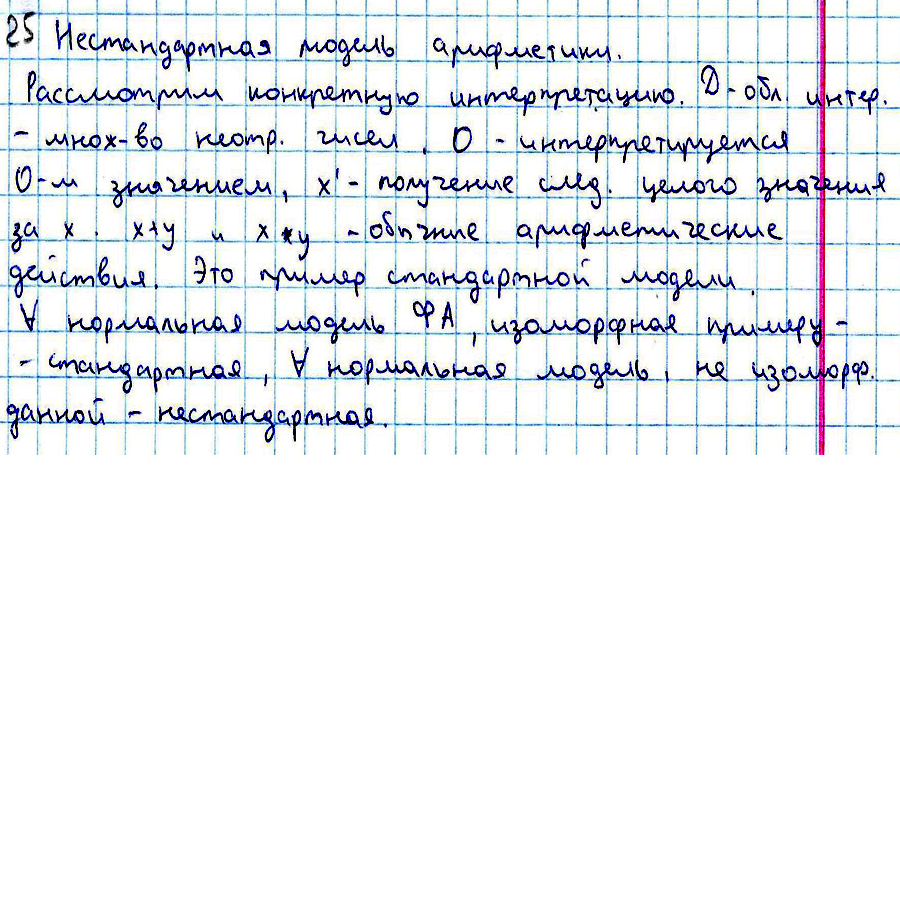 25 Нестандартная модель арифметики.
Рассмотрим конкретную интерпретацию. D - обл. интер.
- множ-во неотр. чисел, 0 - интерпретируется
0-м значением, x' - получение след. целого значения
за x. x+y и x*y - обычные арифметические
действия. Это пример стандартной модели.
∀ нормальная модель ФА, изоморфная примеру -
- стандартная, ∀ нормальная модель, не изоморф.
данной - нестандартная.